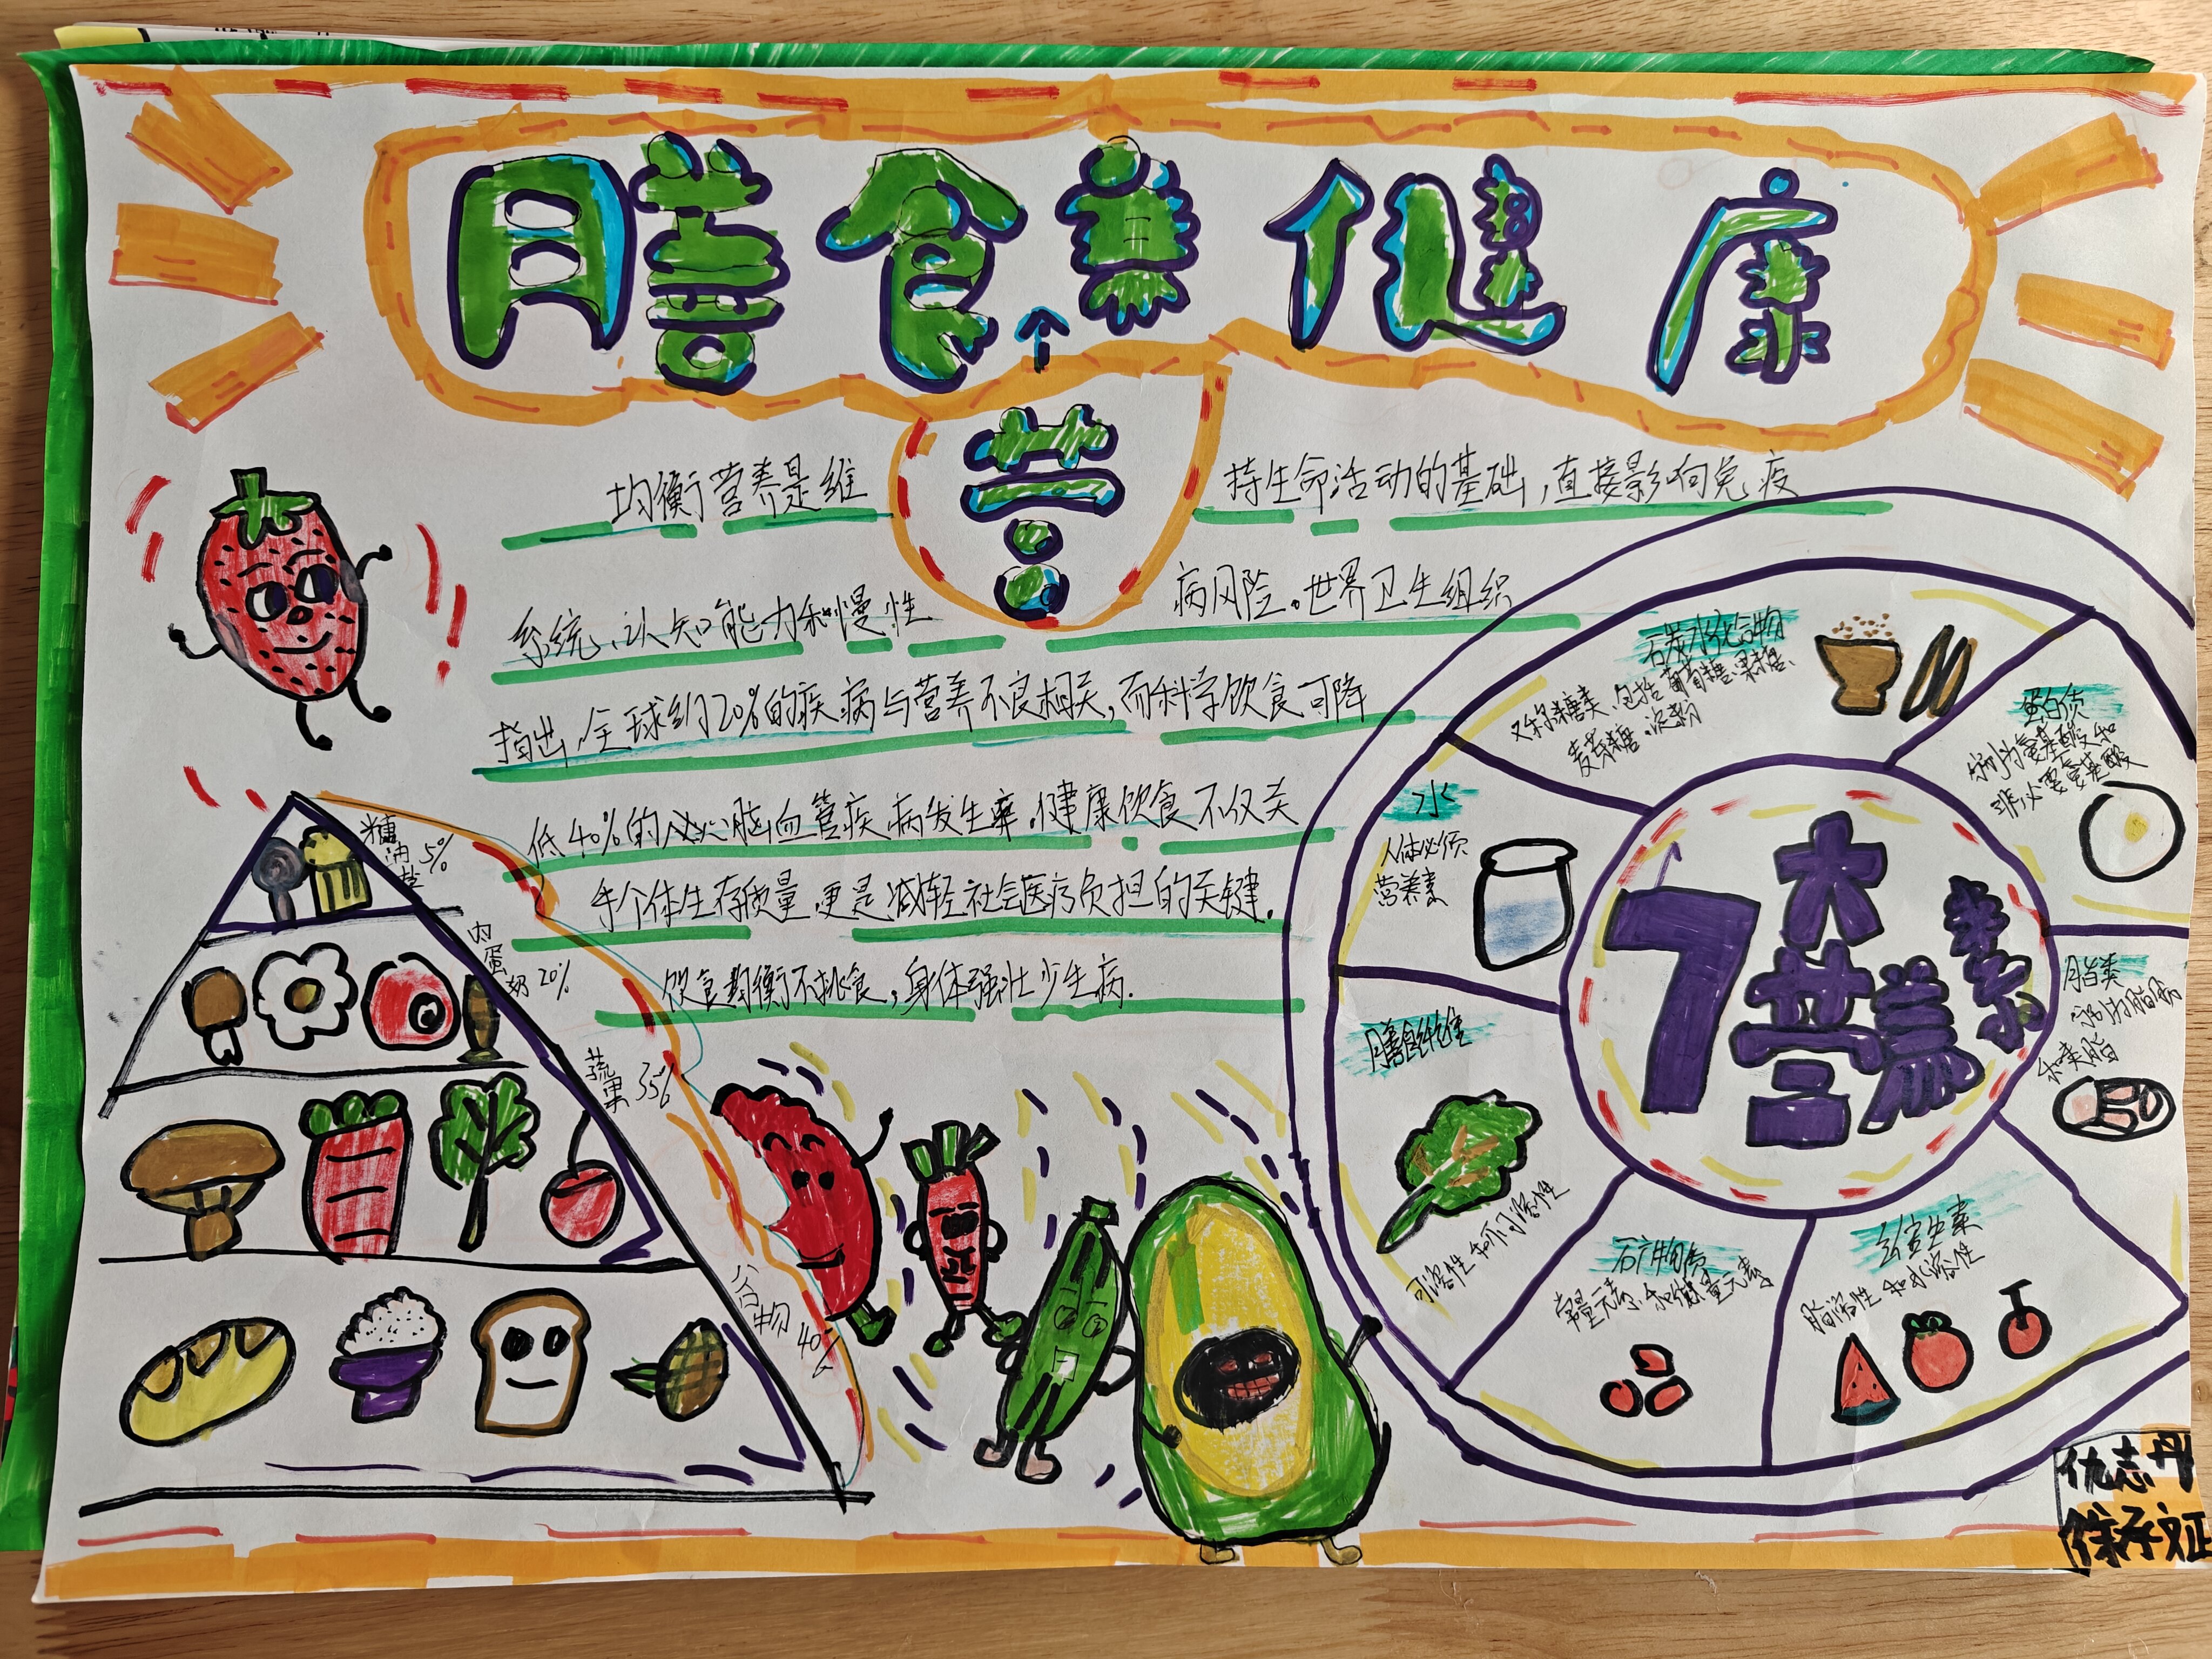 膳食养健康
营
均衡营养是维持生命活动的基础,直接影响免疫
系统、认知能力和慢性病风险。世界卫生组织
指出,全球约20%的疾病与营养不良相关,而科学饮食可降
低40%的心脑血管疾病发生率.健康饮食不仅关
乎个体生存质量,更是减轻社会医疗负担的关键.
饮食均衡不挑食,身体强壮少生病.
糖油盐 5%
肉蛋奶 20%
蔬果 35%
谷物 40%
7大营养素
碳水化合物
又称糖类、包括葡萄糖、果糖、
麦芽糖、淀粉
蛋白质
分为氨基酸和
非必要氨基酸
脂类
分为脂肪
和类脂
维生素
脂溶性和水溶性
矿物质
常量元素和微量元素
膳食纤维
可溶性和不可溶性
水
人体必须
营养素